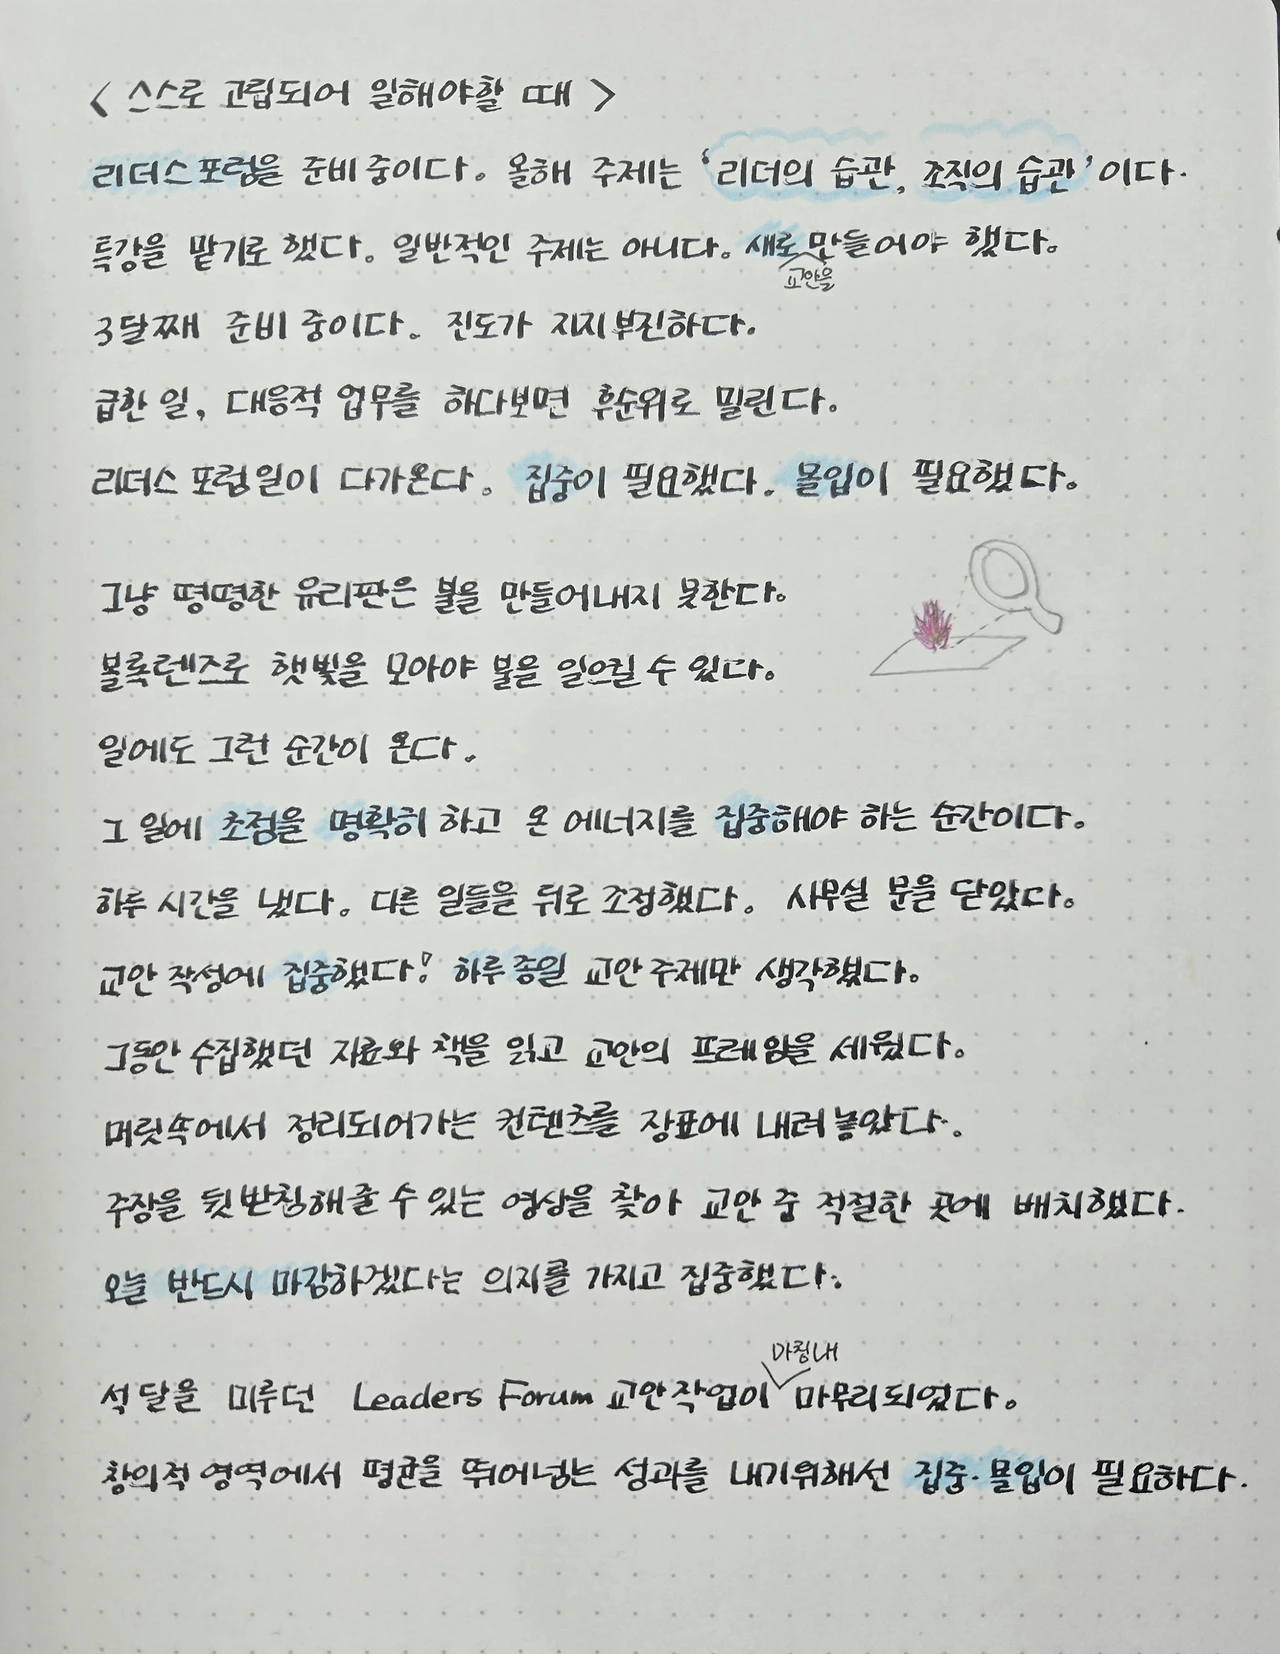 < 스스로 고립되어 일해야할 때 >
리더스포럼을 준비중이다. 올해 주제는 '리더의 습관, 조직의 습관'이다.
특강을 맡기로 했다. 일반적인 주제는 아니다. 새로 만들어야 했다.
교안을
3달째 준비중이다. 진도가 지지부진하다.
급한 일, 대응적 업무를 하다보면 후순위로 밀린다.
리더스 포럼일이 다가온다. 집중이 필요했다. 몰입이 필요했다.
그냥 평평한 유리판은 불을 만들어내지 못한다.
볼록렌즈로 햇빛을 모아야 불을 일으킬 수 있다.
일에도 그런 순간이 온다.
그 일에 초점을 명확히 하고 온 에너지를 집중해야 하는 순간이다.
하루 시간을 냈다. 다른 일들을 뒤로 조정했다. 사무실 문을 닫았다.
교안 작성에 집중했다! 하루종일 교안 주제만 생각했다.
그동안 수집했던 자료와 책을 읽고 교안의 프레임을 세웠다.
머릿속에서 정리되어가는 컨텐츠를 장표에 내려놓았다.
주장을 뒷받침해줄 수 있는 영상을 찾아 교안 중 적절한 곳에 배치했다.
오늘 반드시 마감하겠다는 의지를 가지고 집중했다.
마침내
석달을 미루던 Leaders Forum 교안작업이 마무리되었다.
창의적 영역에서 평균을 뛰어넘는 성과를 내기위해선 집중·몰입이 필요하다.